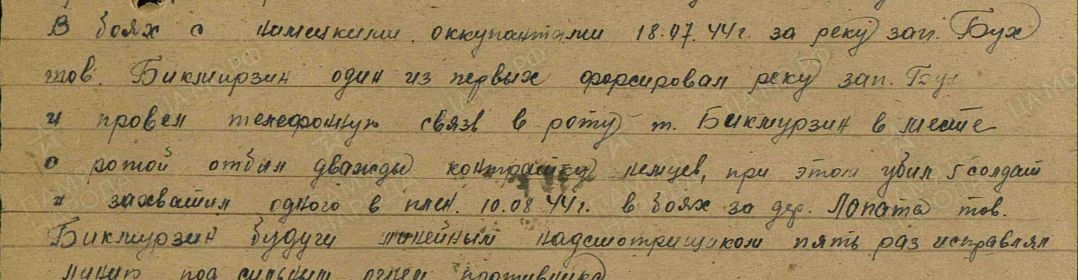 В боях с немецкими оккупантами 18.07.44г. за реку зап. Бух
тов. Бикмурзин один из первых форсировал реку зап. Буг
и провел телефонную связь в роту т. Бикмурзин в месте
с ротой отбил дважды контратаку немцев, при этом убил 5 солдат
и захватил одного в плен. 10.08.44г. в боях за дер. Лопата тов.
Бикмурзин будучи линейным надсмотрщиком пять раз исправлял
линию под сильным огнем противника